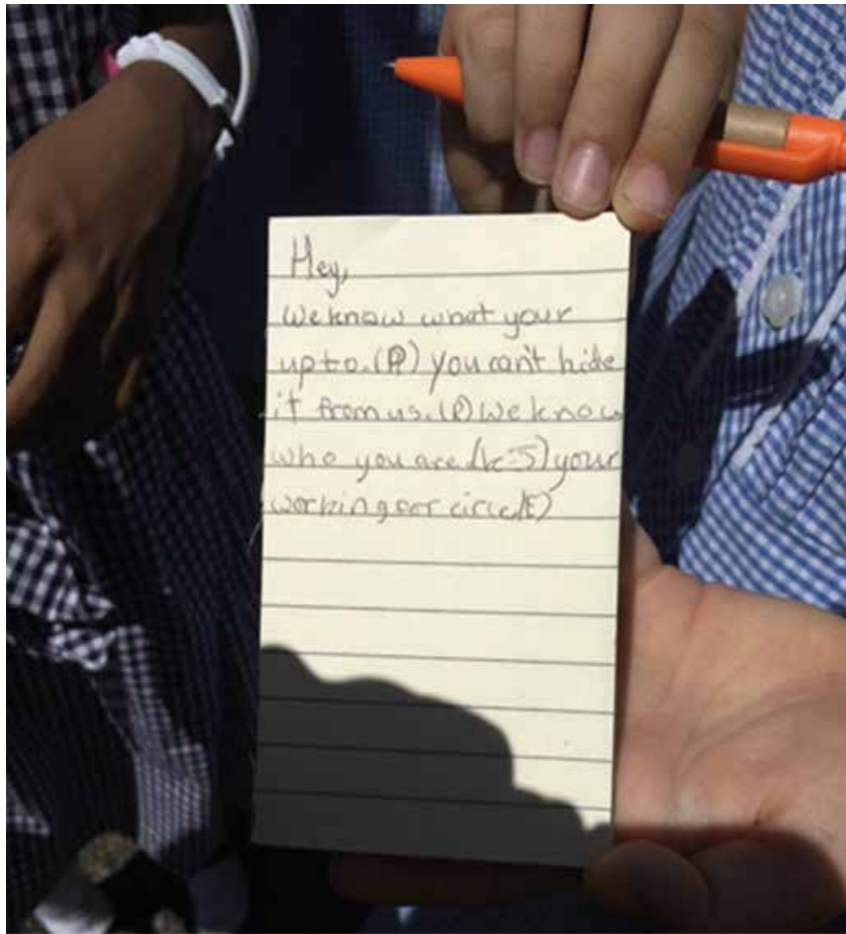 Hey,
We know what your
up to. (P) you can't hide
it from us. (P) We know
who you are (K-S) your
working for circe(E)